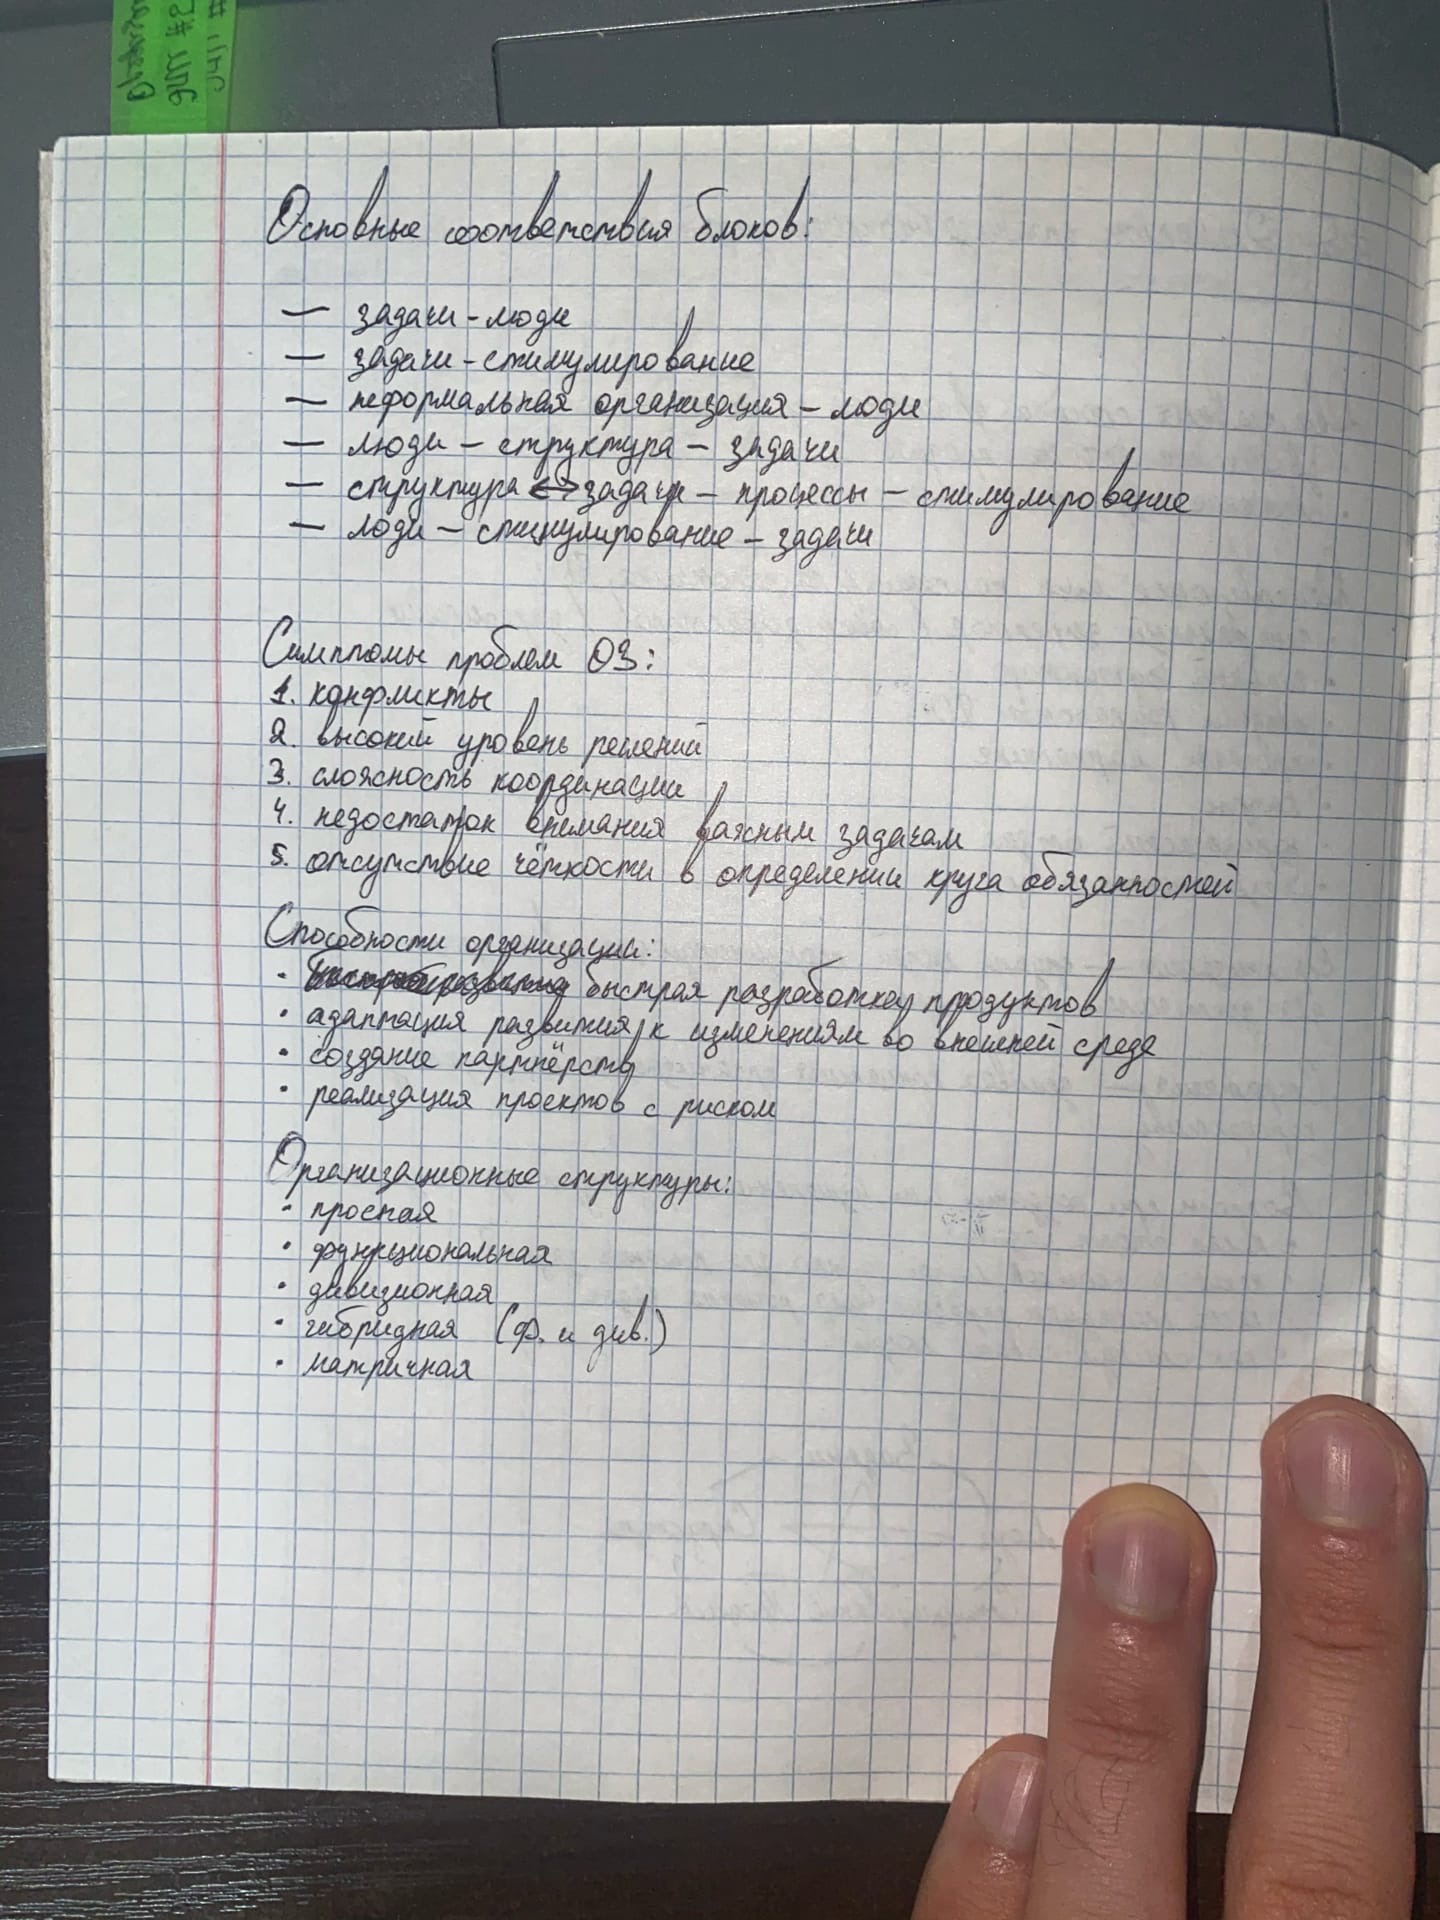 Основные соответствия блоков:
— задачи - люди
— задачи - стимулирование
— неформальная организация - люди
— люди - структура - задачи
— структура <-> задачи - процессы - стимулирование
— люди - стимулирование - задачи
Симптомы проблем ОЗ:
1. конфликты
2. высокий уровень решений
3. сложность координации
4. недостаток внимания важным задачам
5. отсутствие чёткости в определении круга обязанностей
Способности организации:
· быстрая разработка продуктов
· адаптация развития к изменениям во внешней среде
· создание партнёрств
· реализация проектов с риском
Организационные структуры:
· простая
· функциональная
· дивизионная
· гибридная (ф. и див.)
· матричная